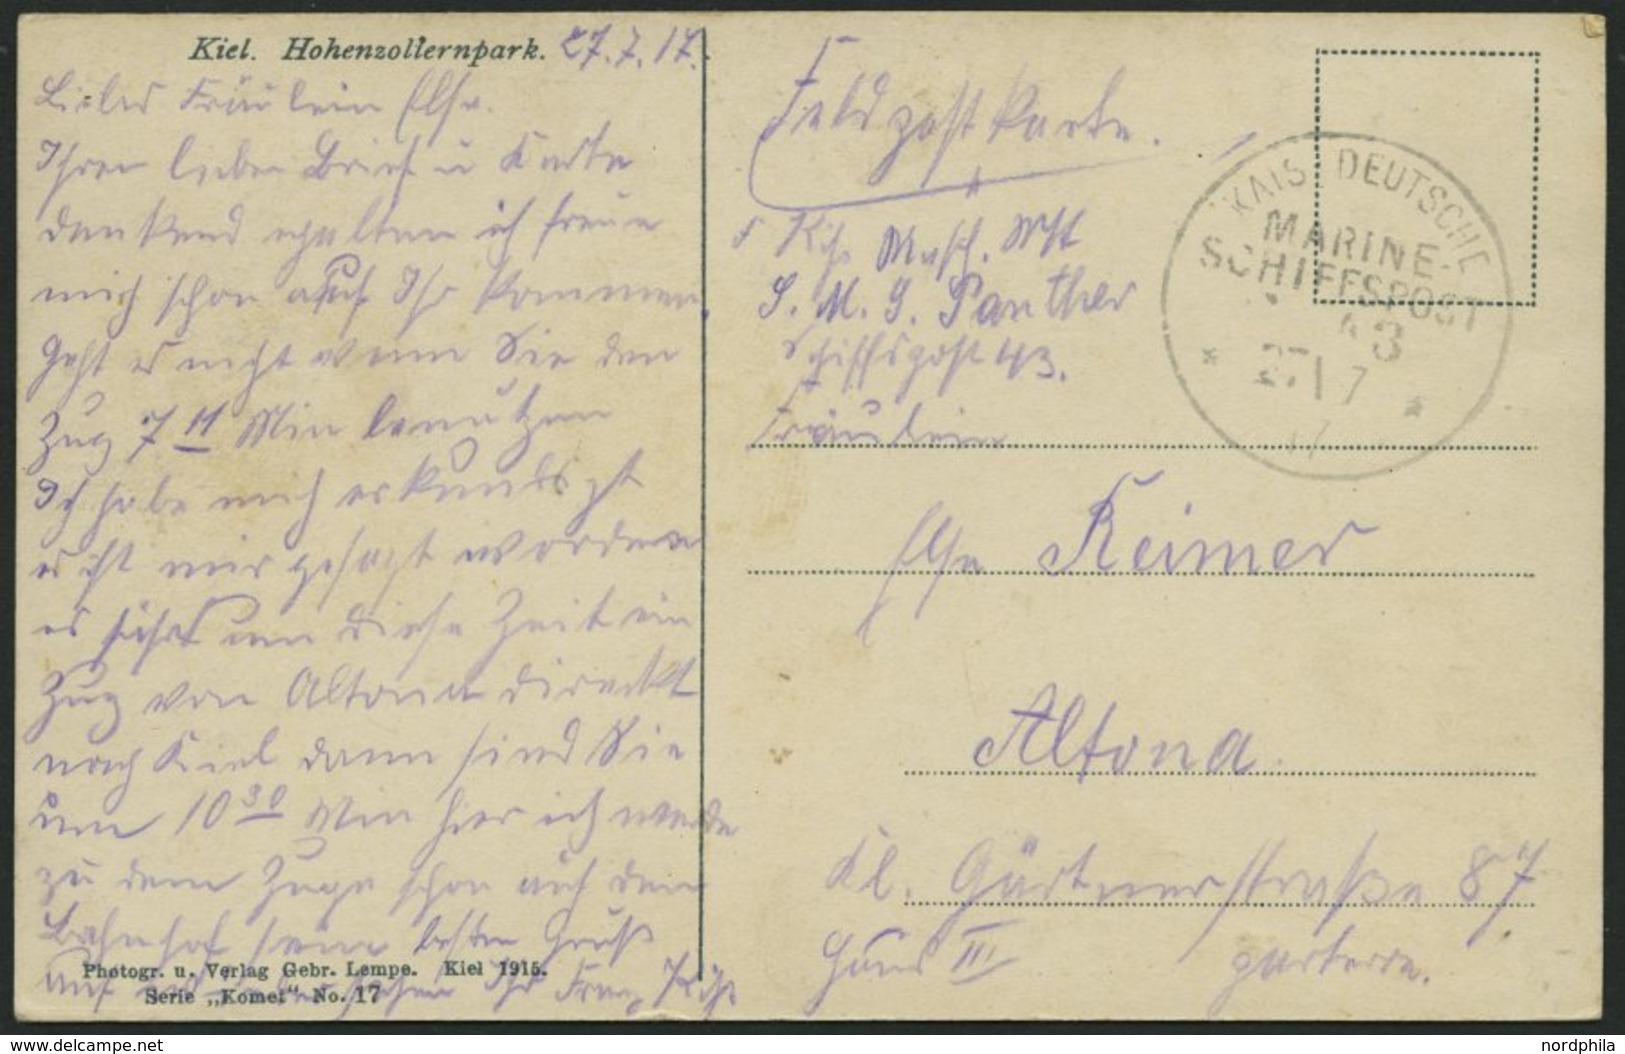 Kiel. Hohenzollernpark. 27.7.17.
Liebes Fräulein Else.
Ihren lieben Brief u Karte
dankend erhalten ich freue
mich schon auf Ihr Kommen.
Geht es nicht wenn Sie den
Zug 7 11 Min benutzen
Ich habe mich erkundigt
es ist mir gesagt worden
es fährt um diese Zeit ein
Zug von Altona direckt
nach Kiel dann sind Sie
um 10 30 Min hier ich werde
zu dem Zuge schon auf dem
Bahnhof sein besten Gruß
auf Ihr Franz
Photogr. u. Verlag Gebr. Lempe. Kiel 1915.
Serie „Komet" No. 17
Feldpostkarte.
Masch.
S. M. S. Panther
Schiffspost 43.
Fräulein
Else Reimer
Altona
Kl. Gärtnerstraße 87
Haus III parterre.
KAIS. DEUTSCHE
MARINE-
SCHIFFSPOST
43
* 27 7 *
17
nordphila
www.delcampe.net